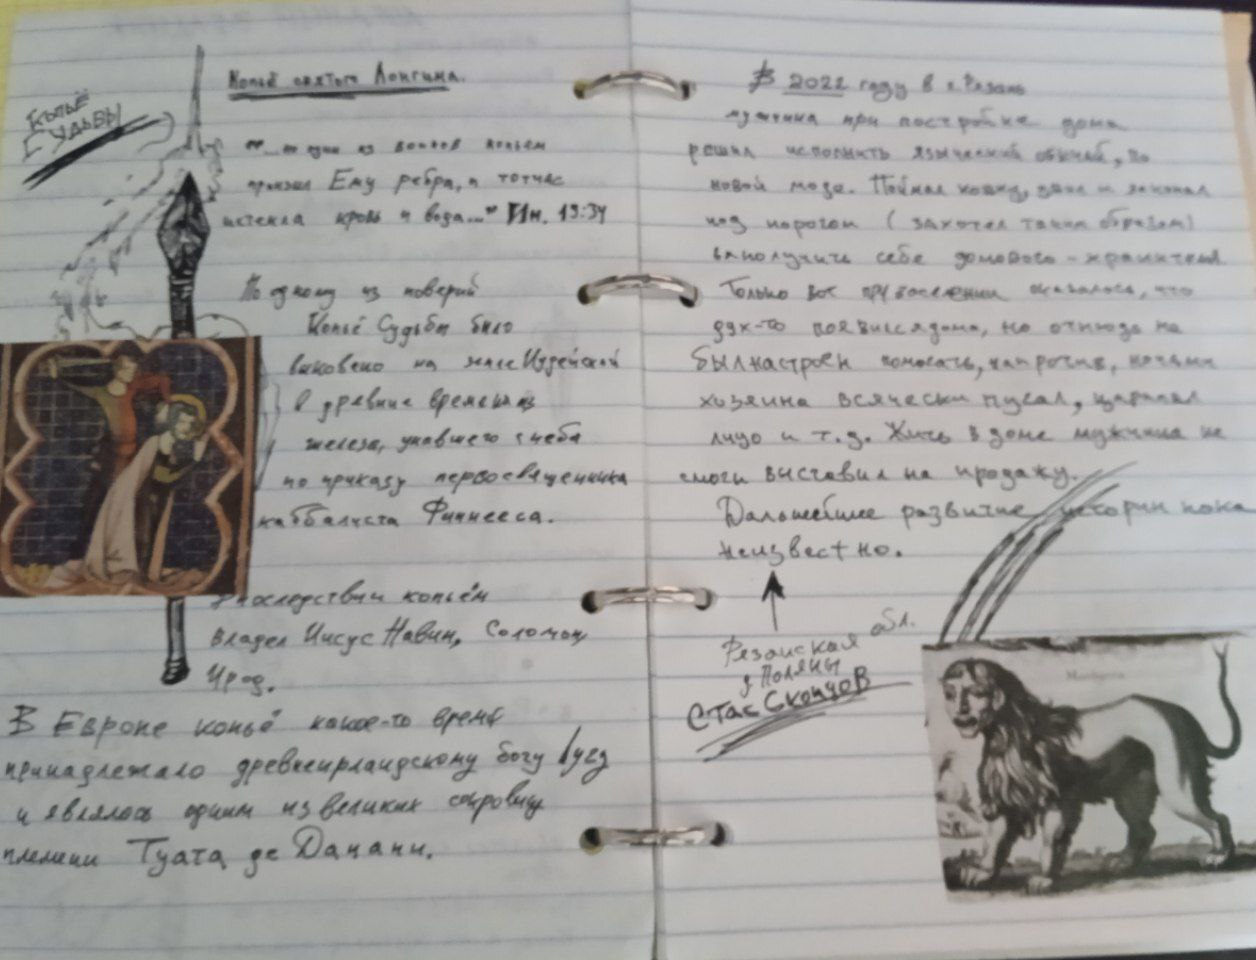 Копьё
Судьбы
Копьё святого Лонгина.
"...но один из воинов копьем
пронзил Ему ребра, и тотчас
истекла кровь и вода..." Ин. 19:34
По одному из поверий
Копьё Судьбы было
выковано на земле Иудейской
в древние времена из
железа, упавшего с неба
по приказу первосвященника
каббалиста Финнееса.
Впоследствии копьём
владел Иисус Навин, Соломон,
Ирод.
В Европе копьё какое-то время
принадлежало древнеирландскому богу Лугу
и являлось одним из великих сокровищ
племени Туата де Данани.
В 2022 году в г. Рязань
мужчина при постройке дома
решил исполнить языческий обычай, по
новой моде. Поймал кошку, убил и закопал
под порогом (захотел таким образом)
заполучить себе домового-хранителя.
Только вот при вселении оказалось, что
дух-то появился дома, но отнюдь не
был настроен помогать, напротив, ночами
хозяина всячески пугал, царапал
лицо и т.д. Жить в доме мужчина не
смог и выставил на продажу.
Дальнейшее развитие истории пока
неизвестно.
Рязанская обл.
д Поляны
Стас Скопцов